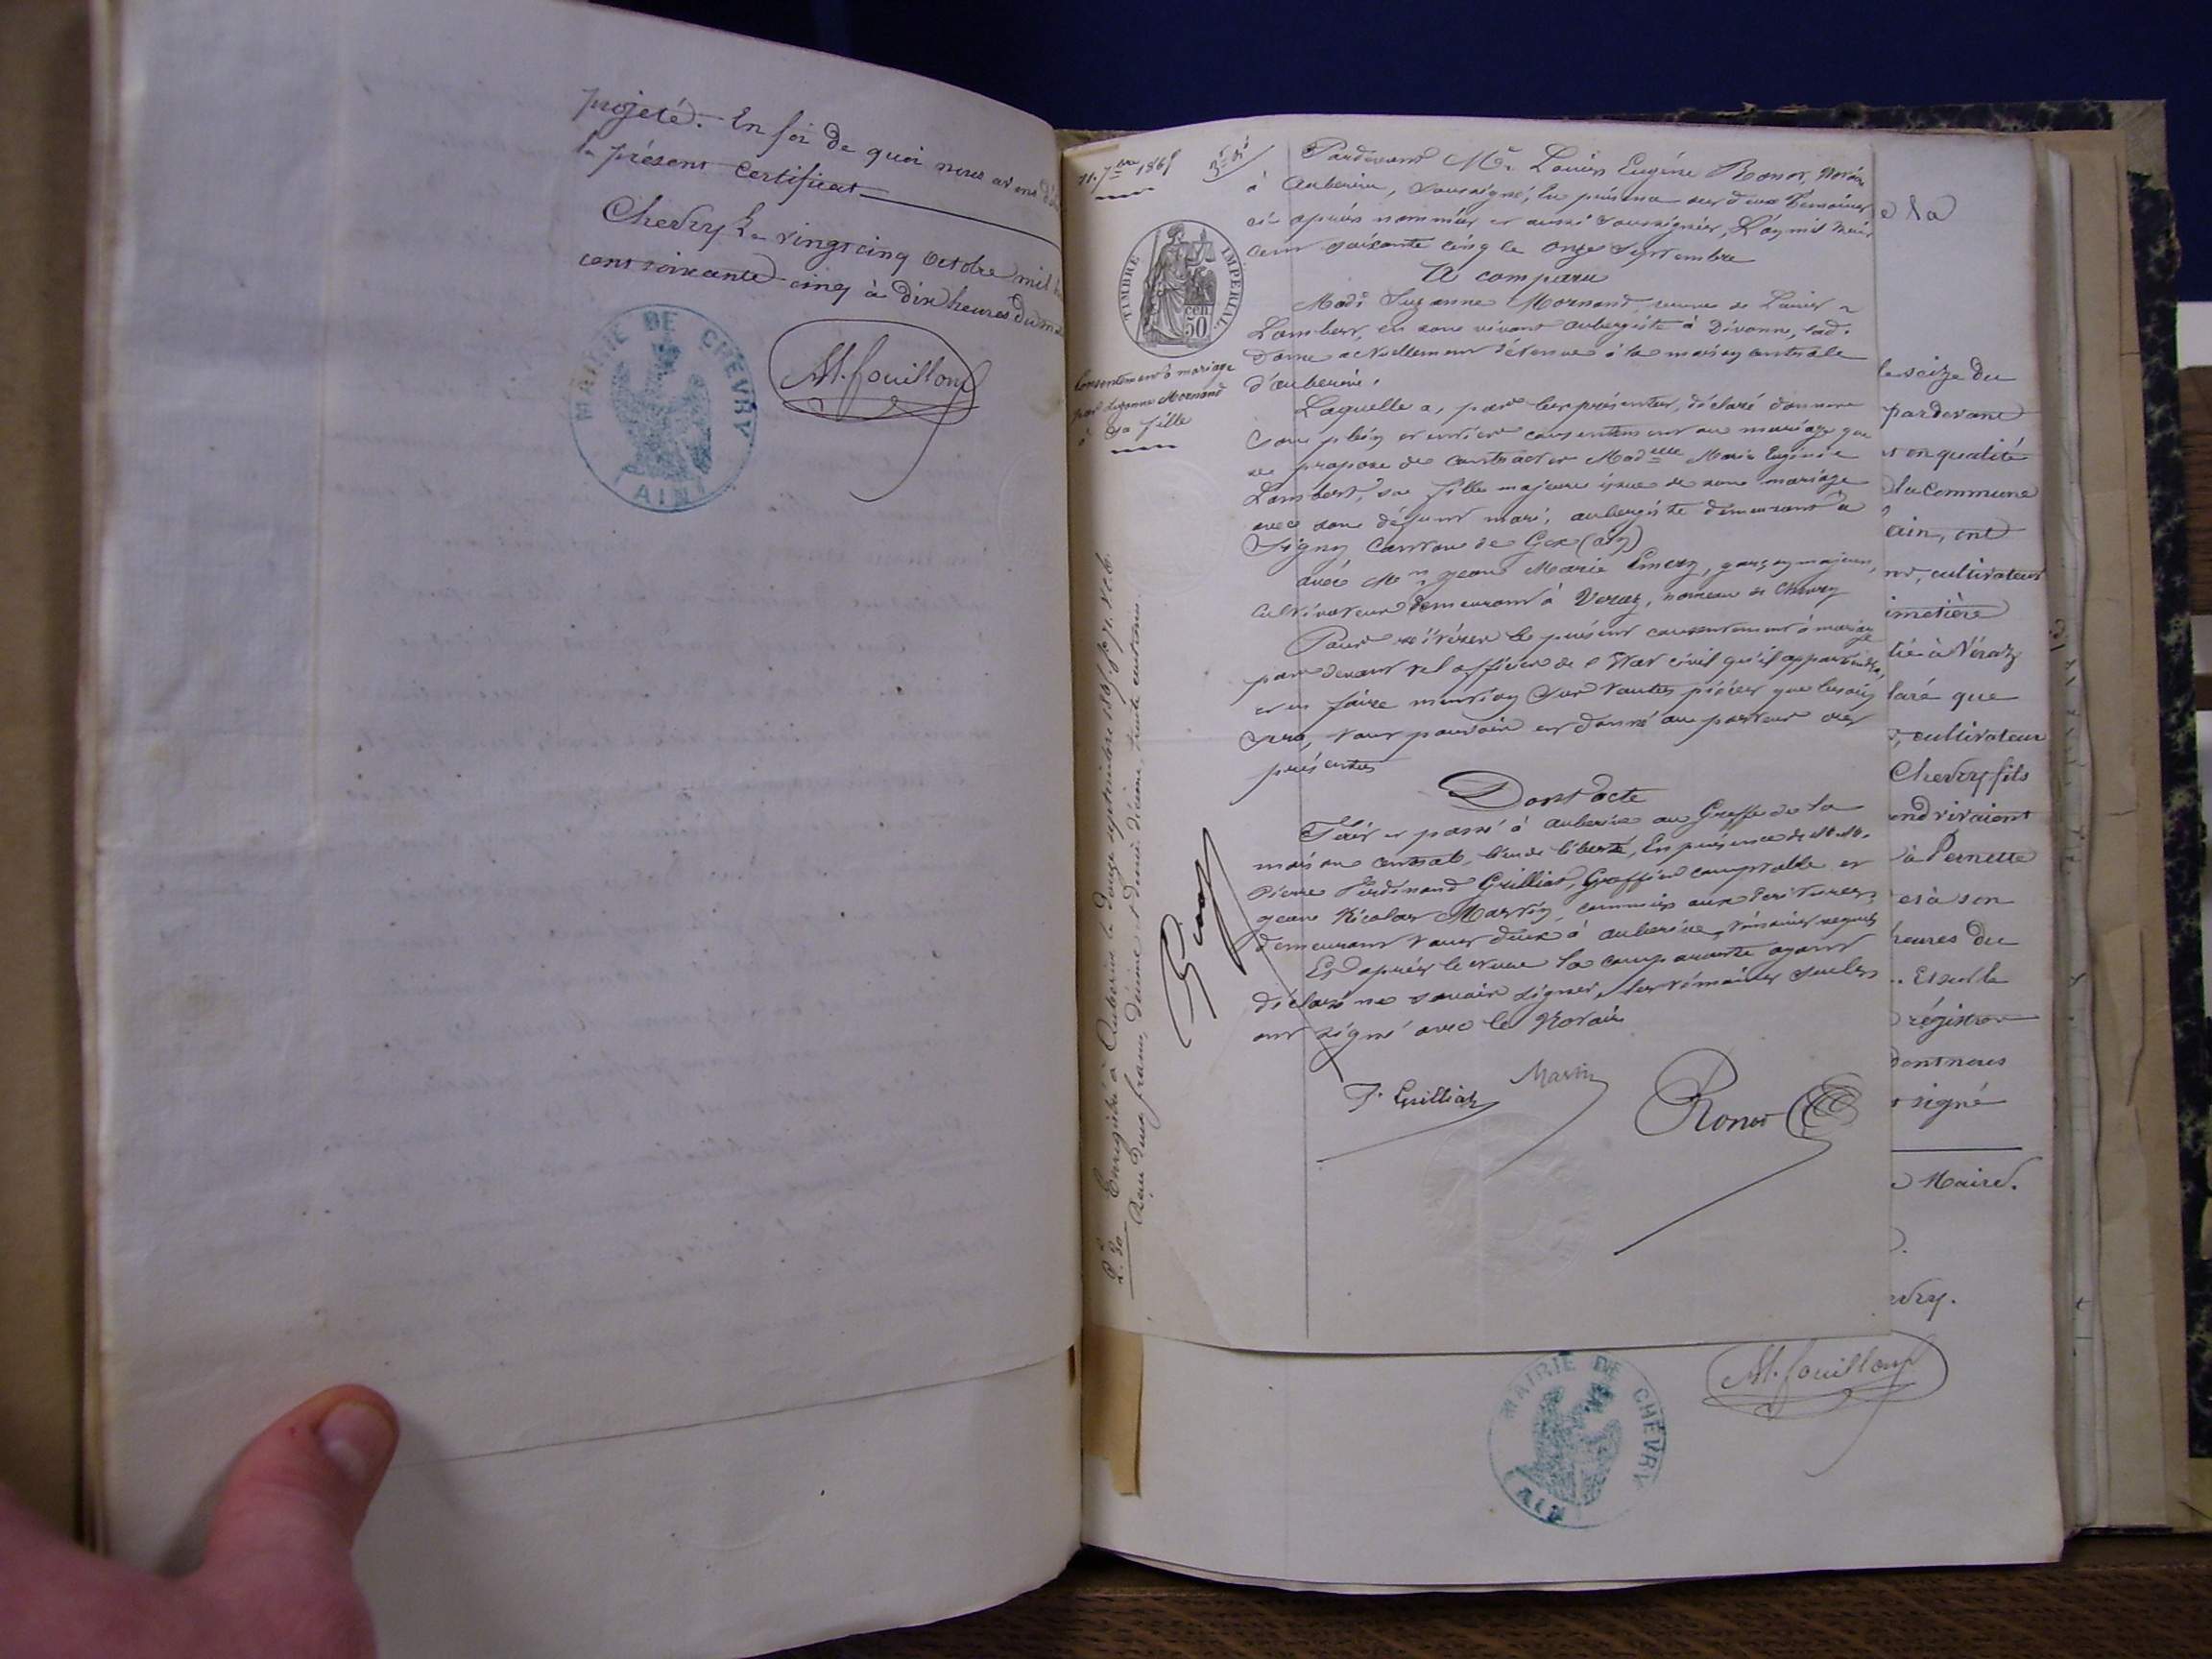 projeté. En foi de quoi nous avons
le présent certificat
Chevry Le vingt cinq octobre mil
cent soixante cinq à dix heures du
MAIRIE DE CHEVRY
AIN
M. fouilloux
11. 7bre 1865
TIMBRE IMPERIAL
50 cen
Consentement à mariage
par Suzanne Mornand
à sa fille
Pardevant Me. Louis Eugène Ronot, Notaire
à Auberive, soussigné, En présence des deux témoins
ci-après nommés et aussi soussignés, L'an mil huit
cent soixante cinq le onze Septembre
A comparu
Made Suzanne Mornand, veuve de Louis
Lambert, en son vivant aubergiste à Divonne, lad.
dame actuellement détenue à la maison centrale
d'auberive.
Laquelle a, par les présentes, déclaré donner
son plein et entier consentement au mariage que
se propose de contracter Madelle Marie Eugénie
Lambert, sa fille majeure issue de son mariage
avec son défunt mari, aubergiste demeurant à
Ségny canton de Gex (ain)
avec Mr. jean Marie Emery, garçon majeur,
cultivateur demeurant à Veraz, hameau de Chevry
Pour réitérer le présent consentement à mariage
par devant tel officier de l'Etat civil qu'il appartiendra,
et en faire mention sur toutes pièces que besoin
sera, tout pouvoir est donné au porteur des
présentes
Dont acte
Fait et passé à auberive au Greffe de la
maison centrale, lieu de liberté, En présence de M.M.
Pierre Ferdinand Grilliat, Greffier comptable et
jean Nicolas Martin, commis aux écritures,
demeurant tous deux à auberive, témoins requis
Et après lecture la comparante ayant
déclaré ne savoir signer, les témoins seuls
ont signé avec le Notaire
F. Grilliat
Martin
Ronot
Enregistré à Auberive le douze septembre 1865 fo 71. Vo c 6.
Reçu deux francs, décime et demi décime, trente centimes.
e la
le seize du
pardevant
en qualité
la commune
ain, ont
cultivateur
imetière
à Véraz
laré que
cultivateur
Chevry fils
vivaient
à Pernette
es à son
heures du
Et sur le
régistre
dont nous
signé
Maire.
vry.
MAIRIE DE CHEVRY
AIN
M. fouilloux